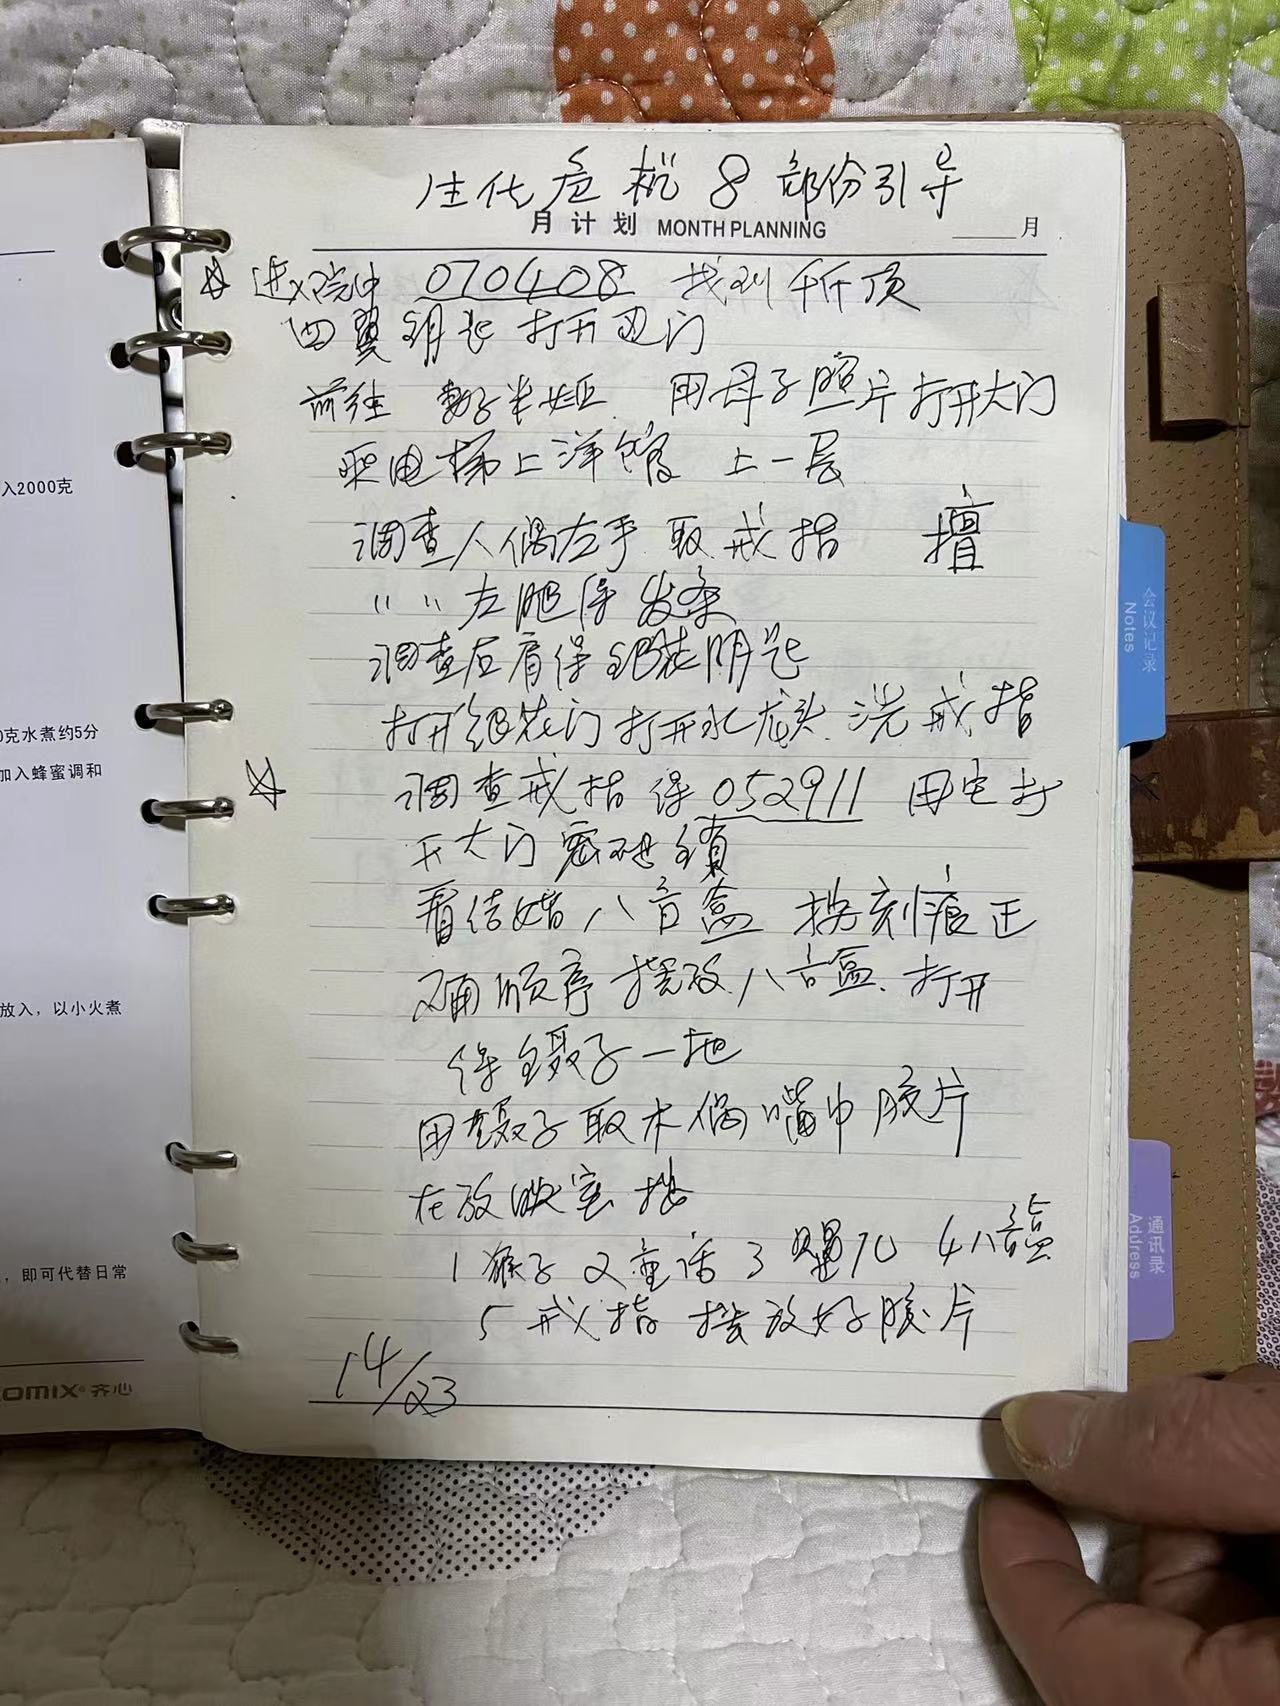 生化危机 8 部份引导
月计划 MONTH PLANNING ____月
☆ 进入院中 070408 找到千斤顶
四翼钥匙 打开边门
前往 用母子照片打开大门
乘电梯上洋馆 上一层
调查人偶左手 取戒指
〃 〃 左腿得发条
调查后肩得银花钥匙
打开银花门 打开水龙头 洗戒指
☆ 调查戒指得 052911 用它打
开大门密码锁
看结婚八音盒 按刻痕正
确顺序摆放八音盒 打开
得镊子一把
用镊子取木偶嘴中胶片
在放映室按
1 猴子 2 童话 3 4 八音盒
5 戒指 摆放好胶片
14/23
入2000克
0克水煮约5分
加入蜂蜜调和
放入，以小火煮
，即可代替日常
COMIX 齐心
会议记录
Notes
通讯录
Address